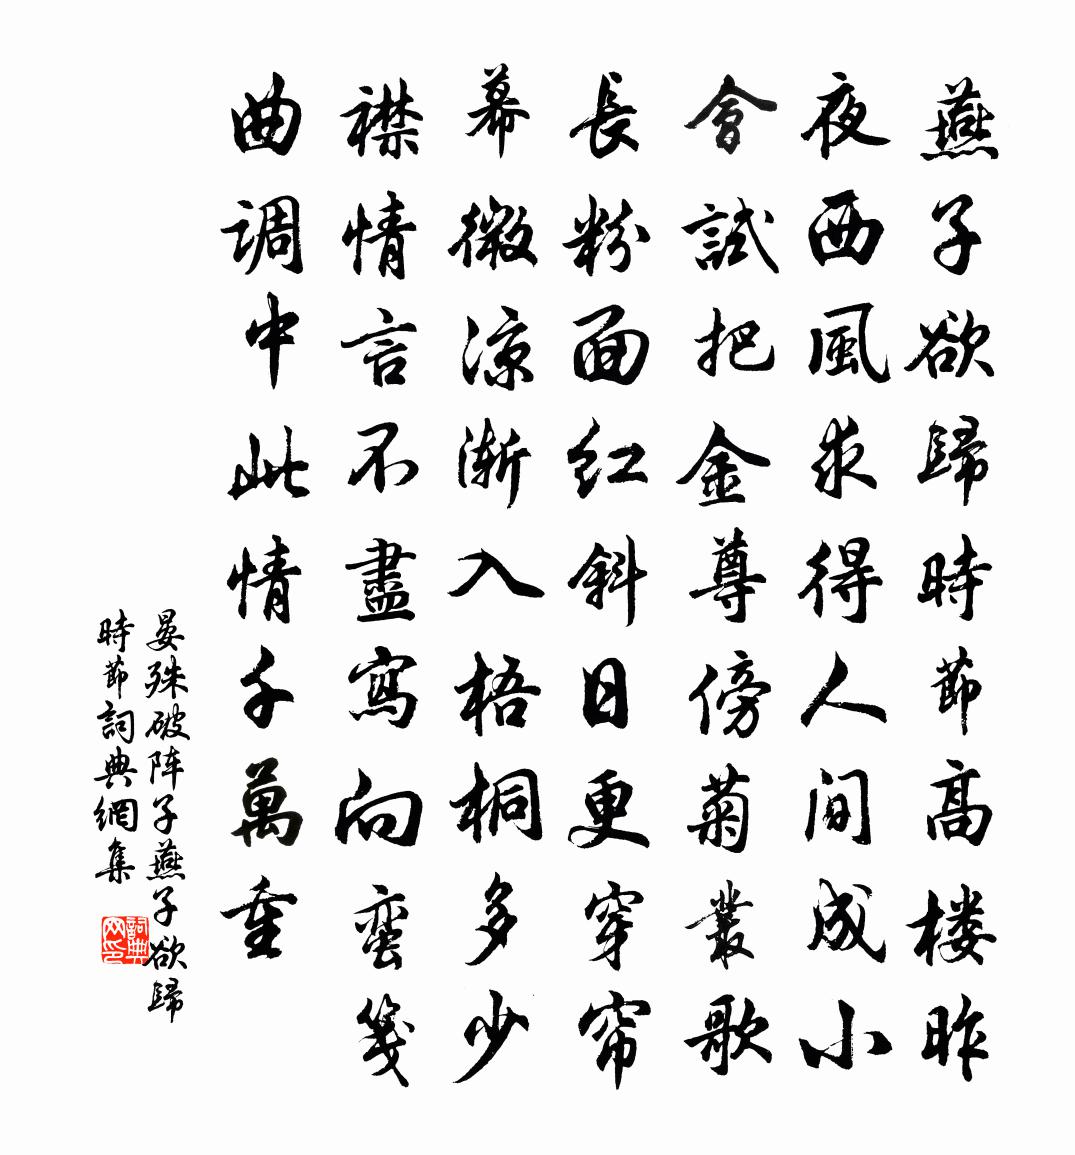 燕子欲歸時節高楼昨
夜西風求得人间成小
會試把金尊傍菊叢歌
長粉面红斜日更穿帘
幕微凉渐入梧桐多少
襟情言不盡寫向蛮箋
曲调中此情千萬重
晏殊破阵子燕子欲歸
時節詞典網集
詞典网印